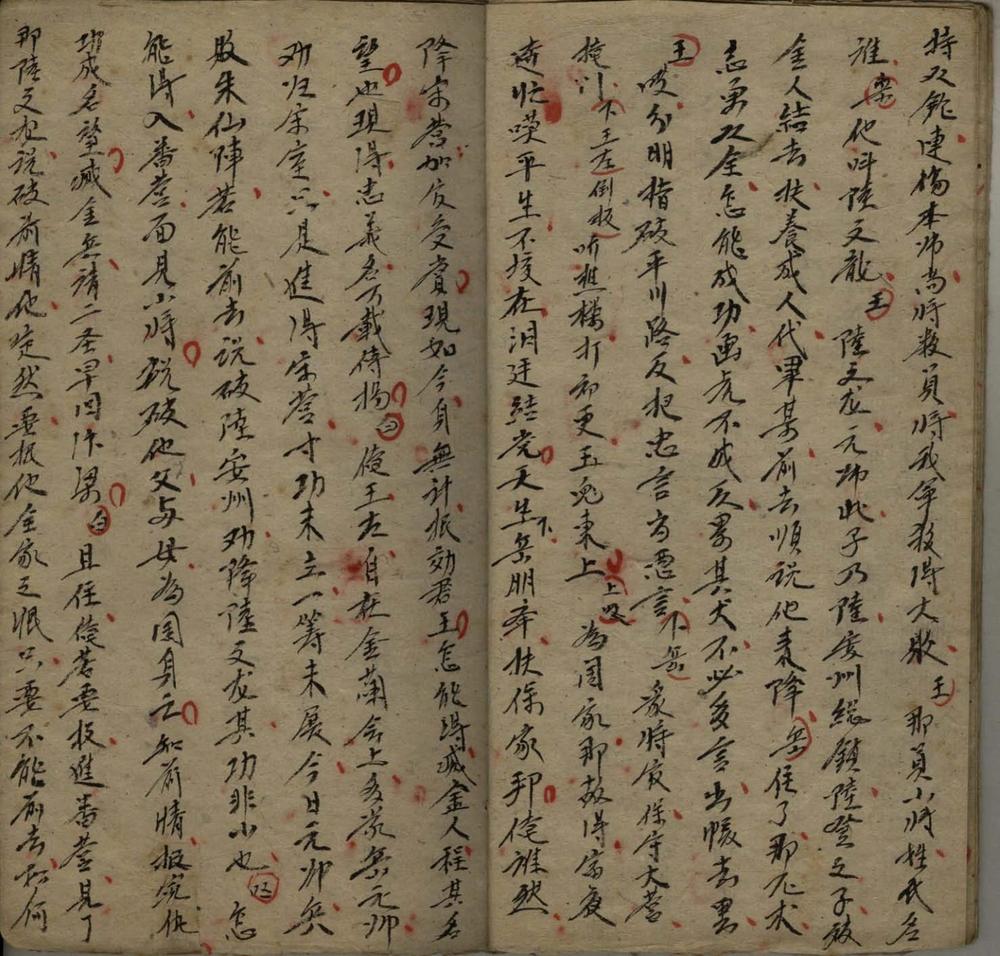 持双鎗連傷本帅尚将数員将我军殺得大敗 王 那員小将姓氏名
誰 岳 他叫陸文龍 王 陸文龙元帅此子乃陸安州総鎮陸登之子被
金人結去扶養成人代畢某前去順说他来降 岳 住了那厄术
忠勇双全怎能成功画虎不成反累其犬不必多言出帳去罢
王 嗳分明指破平川路反把忠言当恶言 下 岳 衆将官保守大营
掩门 下 王左倒板 听樵楼打初更玉兔東上 上 唱 為国家那故得宗夜
遼忙嘆平生不 在 廷結党天生下岳朋舉扶保家邦俺雖然
降宋营加官受賞現如今身無計报効君王怎能得滅金人程其名
望也現得忠義名万載傳揚 白 俺王左自在金蘭会上多蒙岳元帅
劝归宋室只是進得宋营寸功未立一筹未展今日元帅兵
敗朱仙陣若能前去说破陸安州劝降陸文龙其功非小也 唱 怎
能得入番营面見小将説破他父与母為国身亡知前情报寃仇
功成名望滅金兵請二圣早回汴梁 白 且住俺若要投進番营見了
那陸文龙说破前情他定然要报他全家之恨只要不能前去如何